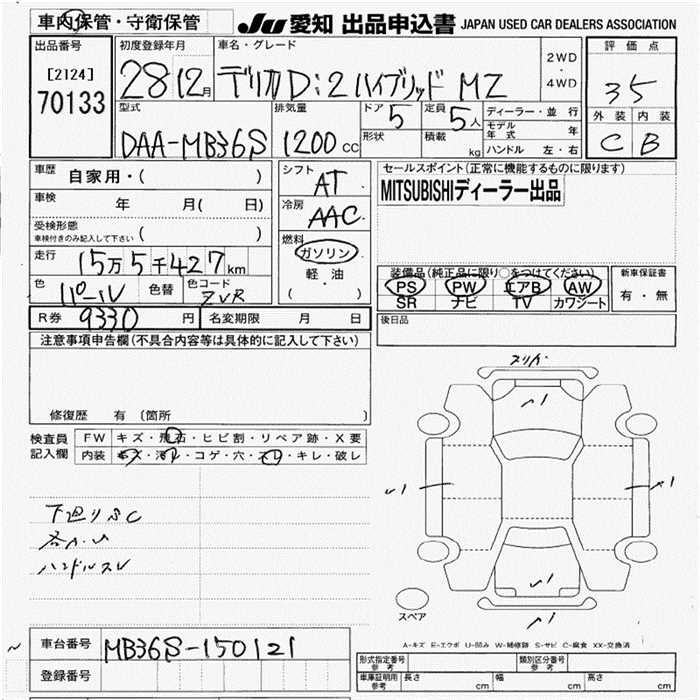 車内保管・守衛保管 JU 愛知 出品申込書 JAPAN USED CAR DEALERS ASSOCIATION
出品番号 初度登録年月 車名・グレード 評価点
[2124] 28 12月 デリカD:2 ハイブリッド MZ 2WD・4WD 35
70133
型式 排気量 ドア 5 定員 5人 ディーラー・並行 外装 内装
DAA-MB36S 1200cc 形状 積載 kg モデル年式 年 C B
ハンドル 左・右
車歴 自家用・( ) シフト AT セールスポイント(正常に機能するものに限ります)
車検 年 月( 日) 冷房 AAC MITSUBISHIディーラー出品
受検形態 ( )
車検付きのみ記入して下さい
燃料 ガソリン
走行 15万5千427km 軽・油 装備品(純正品に限り○をつけてください) 新車保証書
色 パール 色替 色コード ZVR ( ) PS PW エアB AW 有・無
SR ナビ TV カワシート
R券 9330円 名変期限 月 日 後日品
注意事項申告欄(不具合内容等は具体的に記入して下さい)
修復歴 有 (箇所 )
検査員 FW キズ・飛石・ヒビ割・リペア跡・X要
記入欄 内装 キズ・汚レ・コゲ・穴・スレ・キレ・破レ
下廻りサC
ハンドルスレ
スペア
A-キズ E-エクボ U-凹み W-補修跡 S-サビ C-腐食 XX-交換済
車台番号 MB36S-150121
登録番号
形式指定番号 参考 類別区分番号 参考
車庫証明用 参考 長さ cm 幅 cm 高さ cm